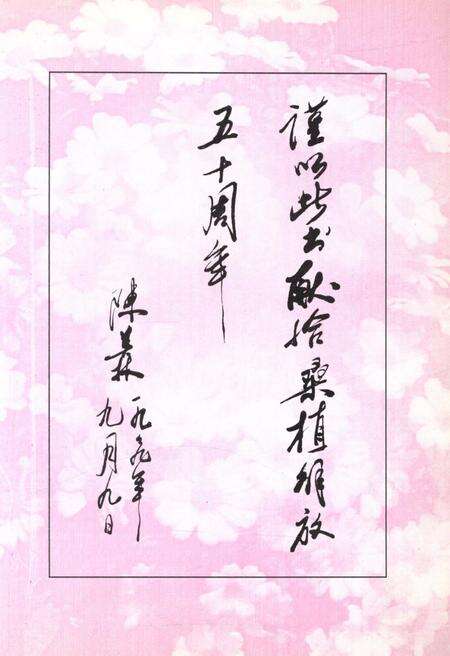 谨以此书献给桑植解放
五十周年
陈義
一九九九年
九月九日